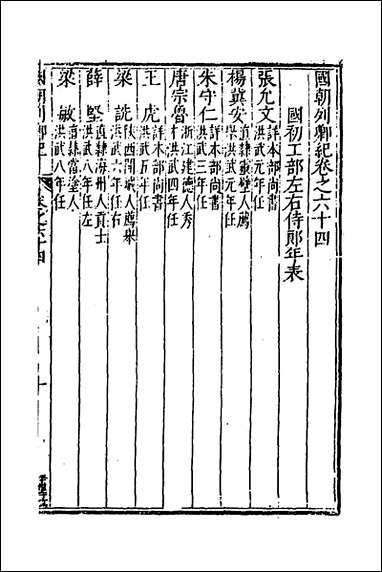 國朝列卿紀卷之六十四
國初工部左右侍郎年表
張允文 詳本部尚書
洪武元年任
楊冀安 直隸靈璧人薦
舉洪武元年任
朱守仁 詳本部尚書
洪武三年任
唐宗魯 浙江建德人秀
才洪武四年任
王虎 詳本部尚書
洪武五年任
梁詵 陝西閿鄉人薦舉
洪武六年任右
薛堅 直隸海州人貢士
洪武八年任左
梁敏 直隸當塗人
洪武八年任
國朝列卿紀 卷之六十四